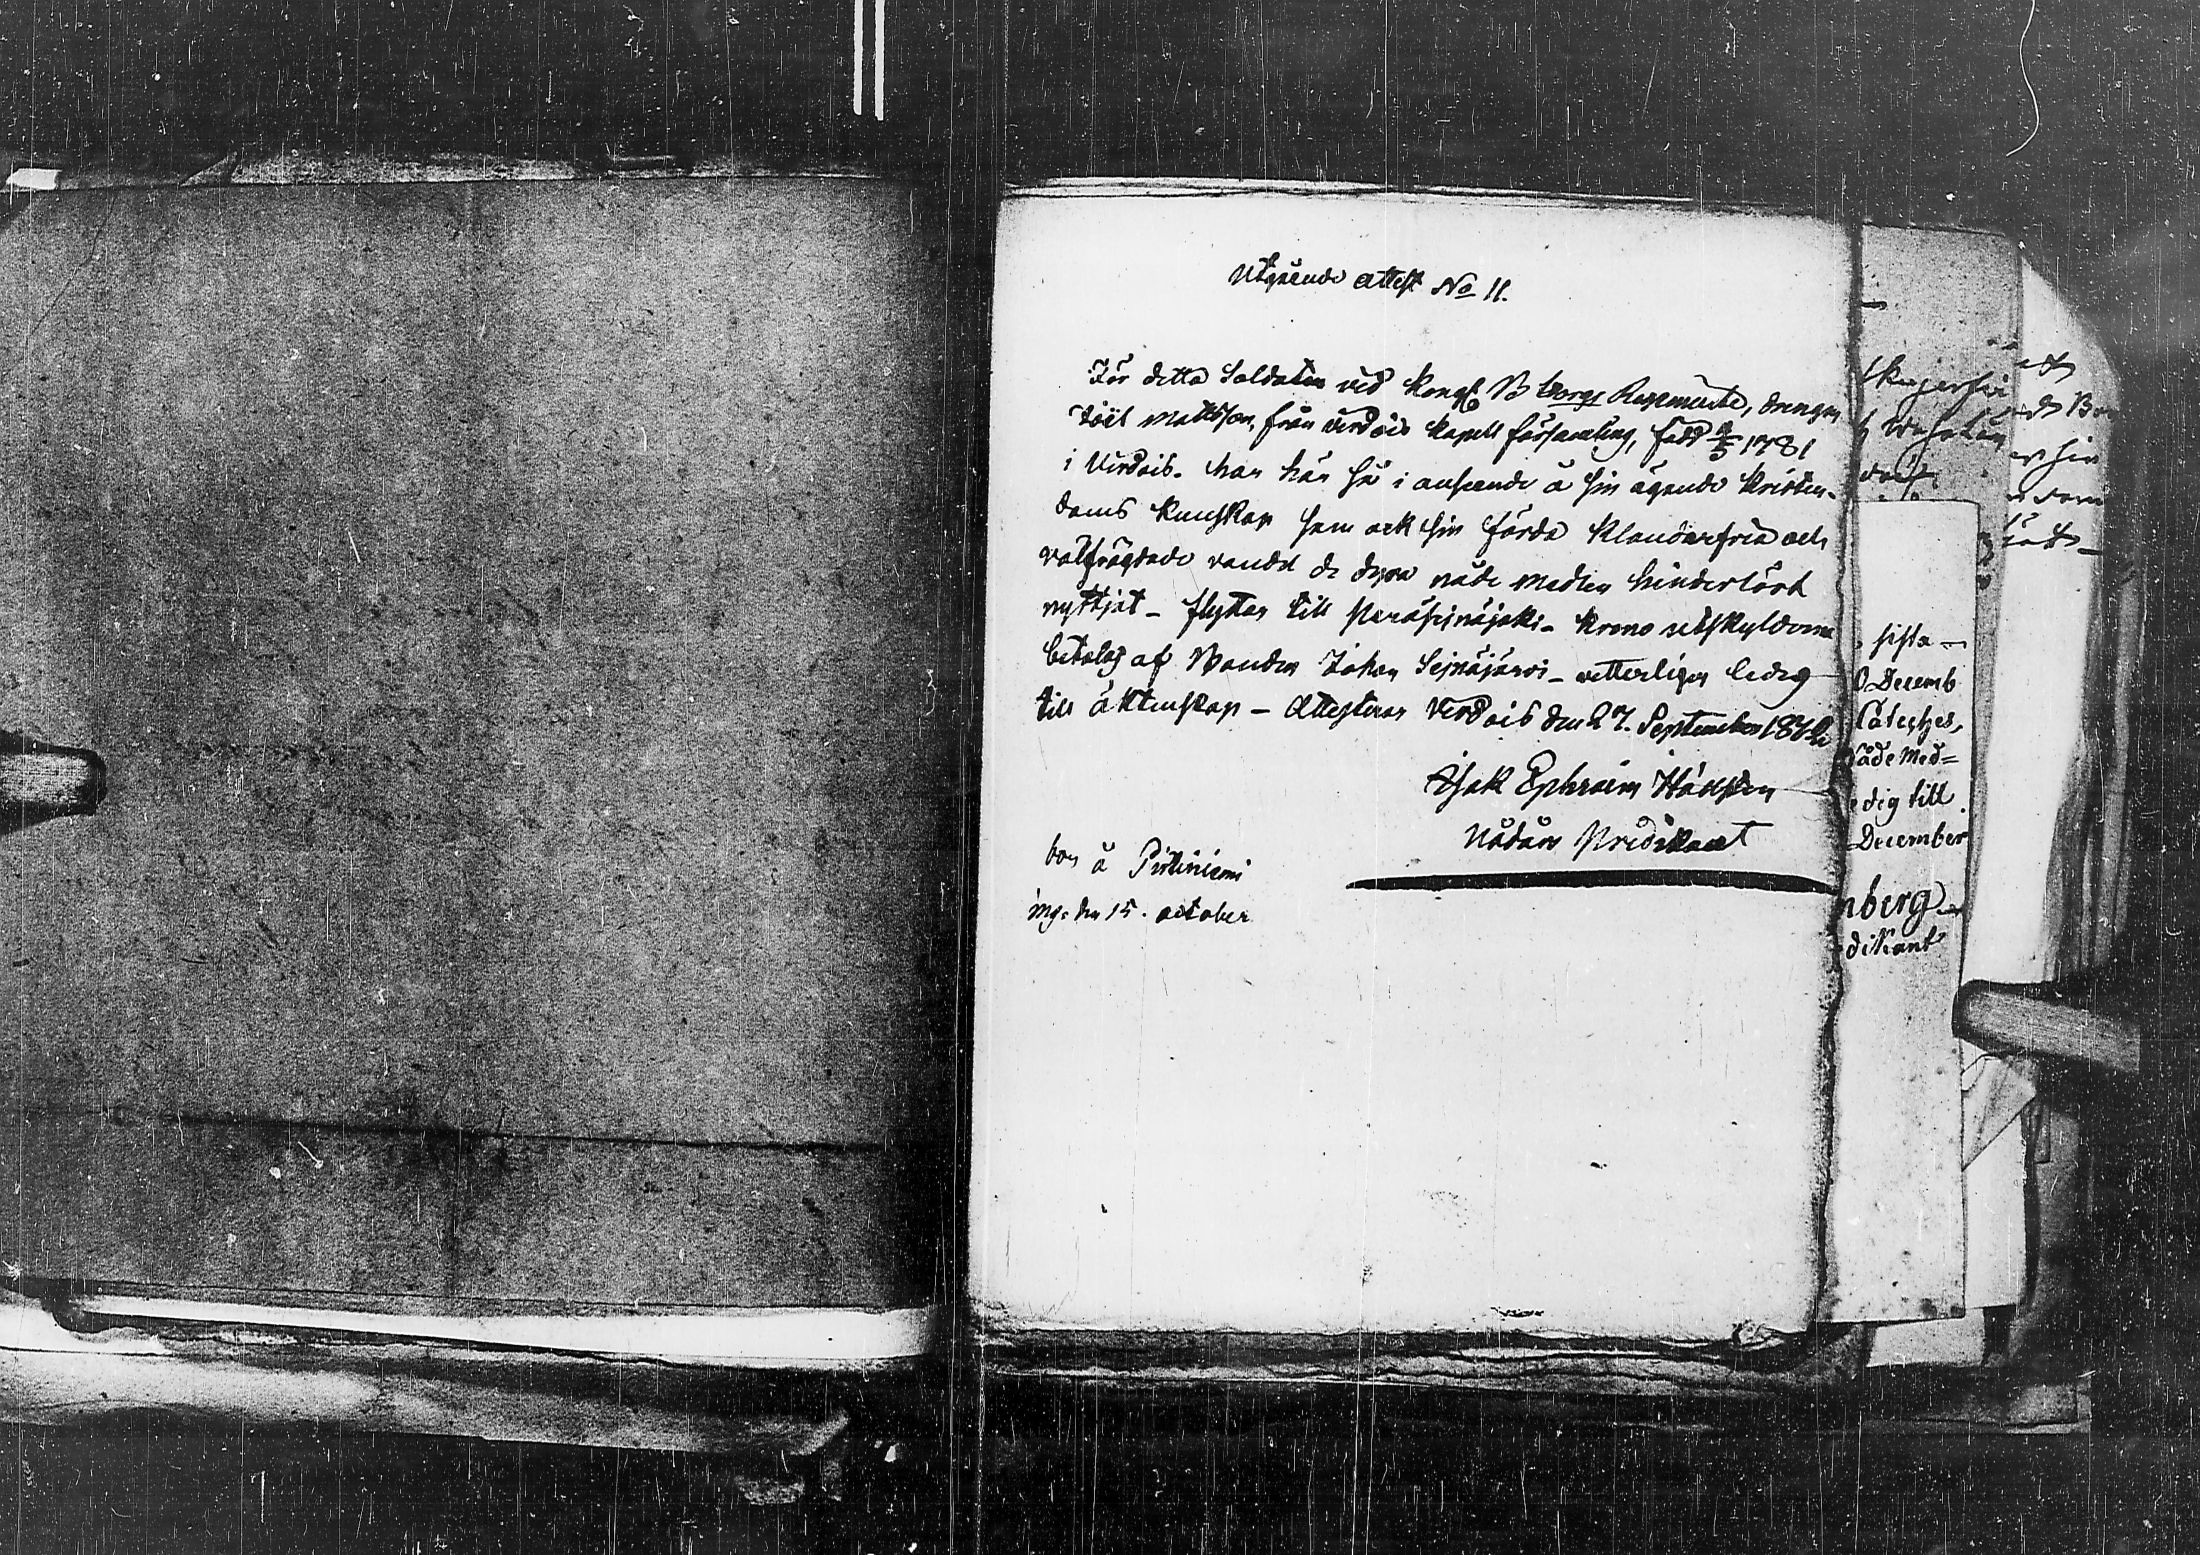 Utgående attest No 11.
För detta Soldaten vid Kongl. B:borgs Regemente, drengen
Joël Mattsson, från Virdois Kapell församling, född 9/3 1781
i Virdois. har här så i anseende å sin ägande Kristen-
doms Kunskap som ock sin förda Klanderfria och
välfrägdade vandel de dyra nåde medlen hinderlöst
nyttjat - flyttar till Peräseinäjoki - Krono utskylderna
betalas af Bonden Johan Seinäjärvi - vetterligen ledig
till äktenskap - Attesteras Virdois den 27. September
Isak Ephraim
Nådårs Predikant
bor å Pistiniemi
ing. den 15. october
sista -
Decemb
Cateches,
Nåde Med=
edig till
December
nberg
dikant